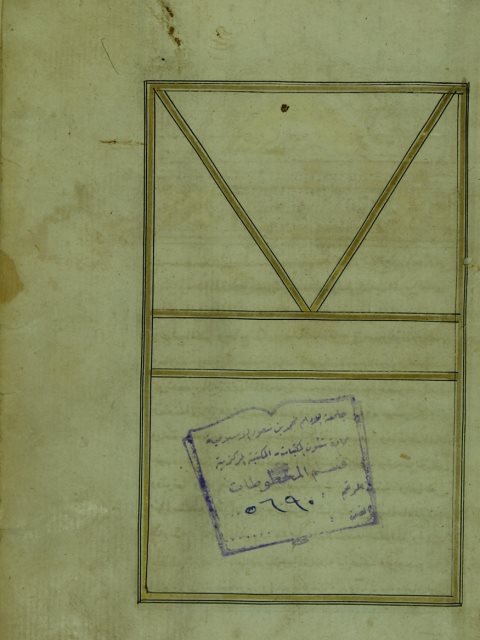 جامعة الإمام محمد بن سعود الإسلامية
عمادة شئون المكتبات - المكتبة المركزية
قسم المخطوطات
الرقم : ٥٦٩٠